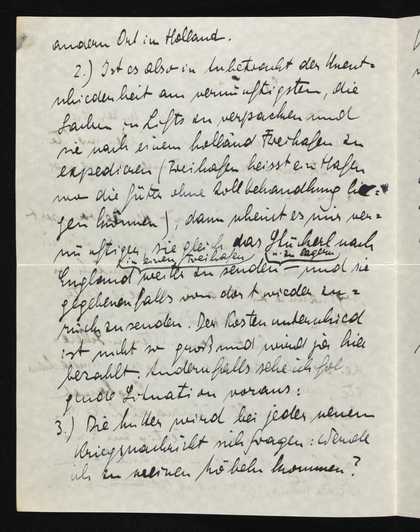 andern Ort in Holland.
2.) Ist es also in Anbetracht der Unent-
schiedenheit am vernünftigsten, die
Sachen in Lifts zu verpacken und
sie nach einem holländ Freihafen zu
expedieren (Freihafen heisst ein Hafen
wo die Güter ohne Zollbehandlung lie-
gen können), dann scheint es mir ver-
nünftiger, sie gleich das Stückerl nach
in einen Freihafen u. zu lagern
England weiter zu senden – und sie
gegebenenfalls von dort wieder zu-
rückzusenden. Der Kostenunterschied
ist nicht so groß und wird ja hie
bezahlt. Andernfalls sehe ich fol
gende Situation voraus:
3.) Die Mutter wird bei jeder neuen
Kriegsnachricht sich fragen: Werde
ich zu meinen Möbeln kommen?